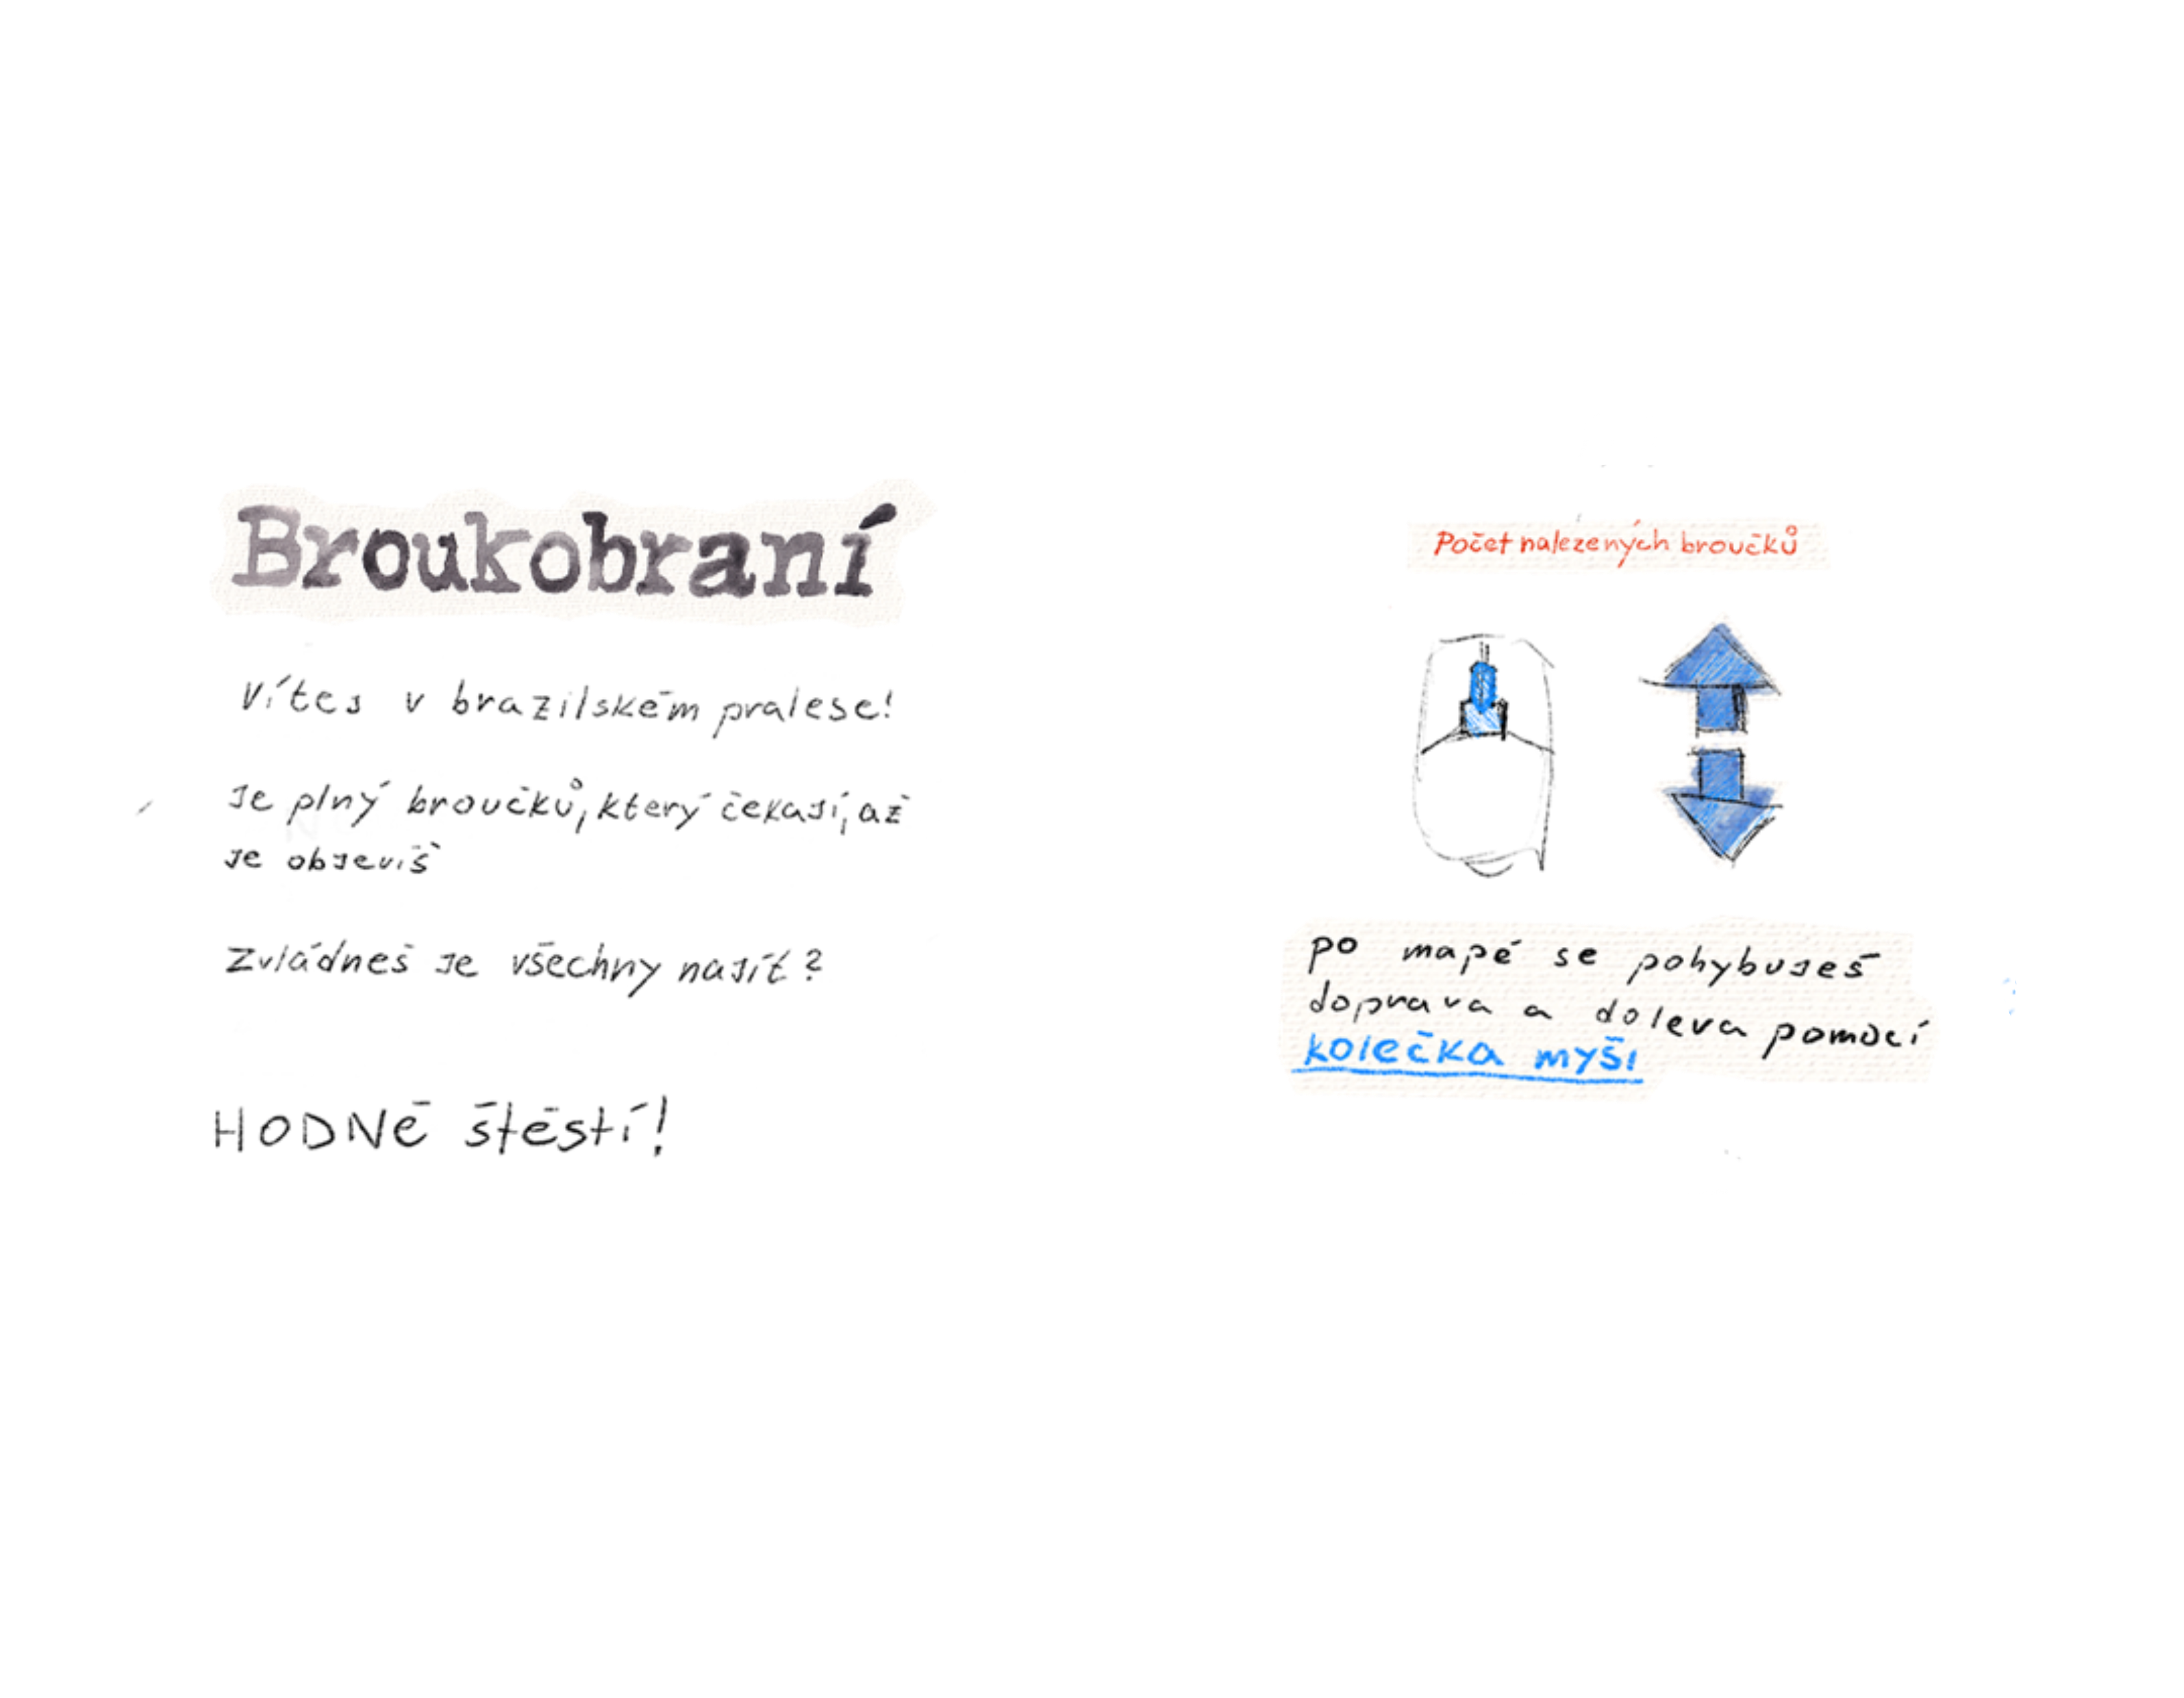 Broukobraní
Vítej v brazilském pralese!
Je plný broučků, který čekají, až
je objevíš
Zvládneš je všechny najít?
HODNĚ štěstí!
Počet nalezených broučků
po mapě se pohybuješ
doprava a doleva pomocí
kolečka myši